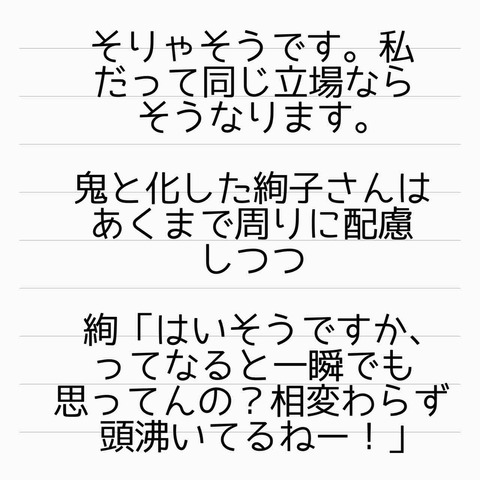 そりゃそうです。私
だって同じ立場なら
そうなります。
鬼と化した絢子さんは
あくまで周りに配慮
しつつ
絢「はいそうですか、
ってなると一瞬でも
思ってんの？相変わらず
頭沸いてるねー！」